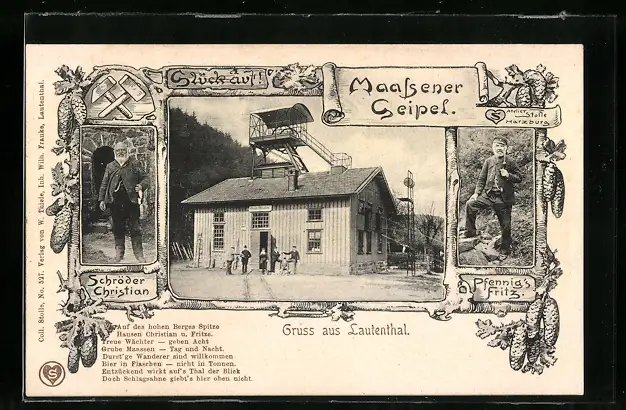 Glück auf!
Maaßener
Geipel.
Atelier
Stolle
Harzburg
Schröder
Christian
Pfennig's
Fritz.
Gruss aus Lautenthal.
Auf des hohen Berges Spitze
Hausen Christian u. Fritze.
Treue Wächter — geben Acht
Grube Maassen — Tag und Nacht.
Durst'ge Wanderer sind willkommen
Bier in Flaschen — nicht in Tonnen.
Entzückend wirkt auf's Thal der Blick
Doch Schlagsahne giebt's hier oben nicht.
Coll. Stolle, No. 527. Verlag von W. Thiele, Inh. Wilh. Franke, Lautenthal.